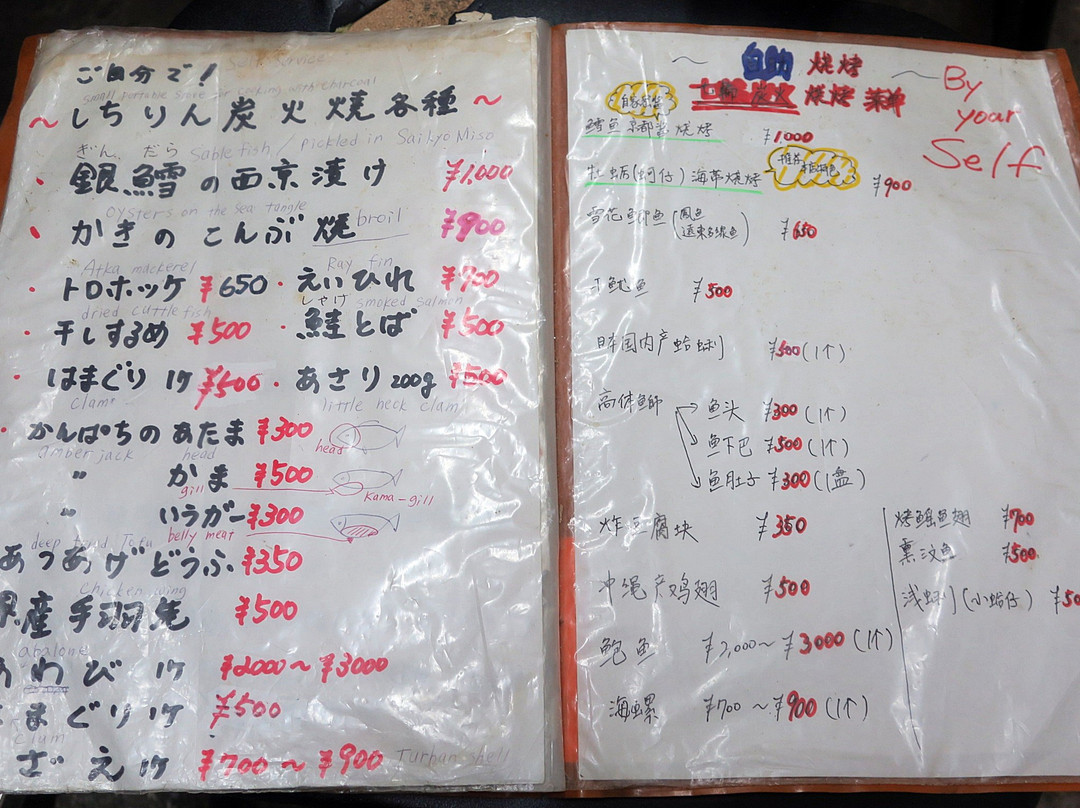 ご自分で! Self Service
small portable stove for cooking with charcoal
~しちりん炭火焼各種~
ぎん だら Sablefish / pickled in Saikyo Miso
・銀鱈の西京漬け ¥1,000
Oysters on the Sea tangle
・かきのこんぶ焼 broil ¥900
Atka mackerel Ray fin
・トロホッケ ¥650 ・えいひれ ¥700
dried cuttlefish しゃけ smoked salmon
・干しするめ ¥500 ・鮭とば ¥500
・はまぐり 1ケ ¥500 ・あさり 200g ¥500
clam little neck clam
・かんぱちの あたま ¥300 head
amber jack head
〃 かま ¥500
gill Kama-gill
〃 いらガー ¥300
deep fried Tofu belly meat
あつあげどうふ ¥350
chicken wing
県産手羽先 ¥500
abalone
あわび 1ケ ¥2000~¥3000
まぐり1ケ ¥500
clam
ざえ 1ケ ¥700~¥900 Turban shell
~ 自助 烧烤 ~
七轮 炭火 烧烤 菜单
By your Self
鳕鱼京都酱烧烤 ¥1,000
牡蛎(蚵仔)海带烧烤 推荐 ¥900
雪花鲫鱼(凤鱼 远东多线鱼) ¥650
干鱿鱼 ¥500
日本国内产蛤蜊 ¥500(1个)
高体鰤 鱼头 ¥300(1个)
鱼下巴 ¥500(1个)
鱼肚子 ¥300(1盘)
炸豆腐块 ¥350
冲绳产鸡翅 ¥500
鲍鱼 ¥2,000~¥3000(1个)
海螺 ¥700~¥900(1个)
烤鳐鱼翅 ¥700
熏鲑鱼 ¥500
浅蜊(小蛤仔) ¥50